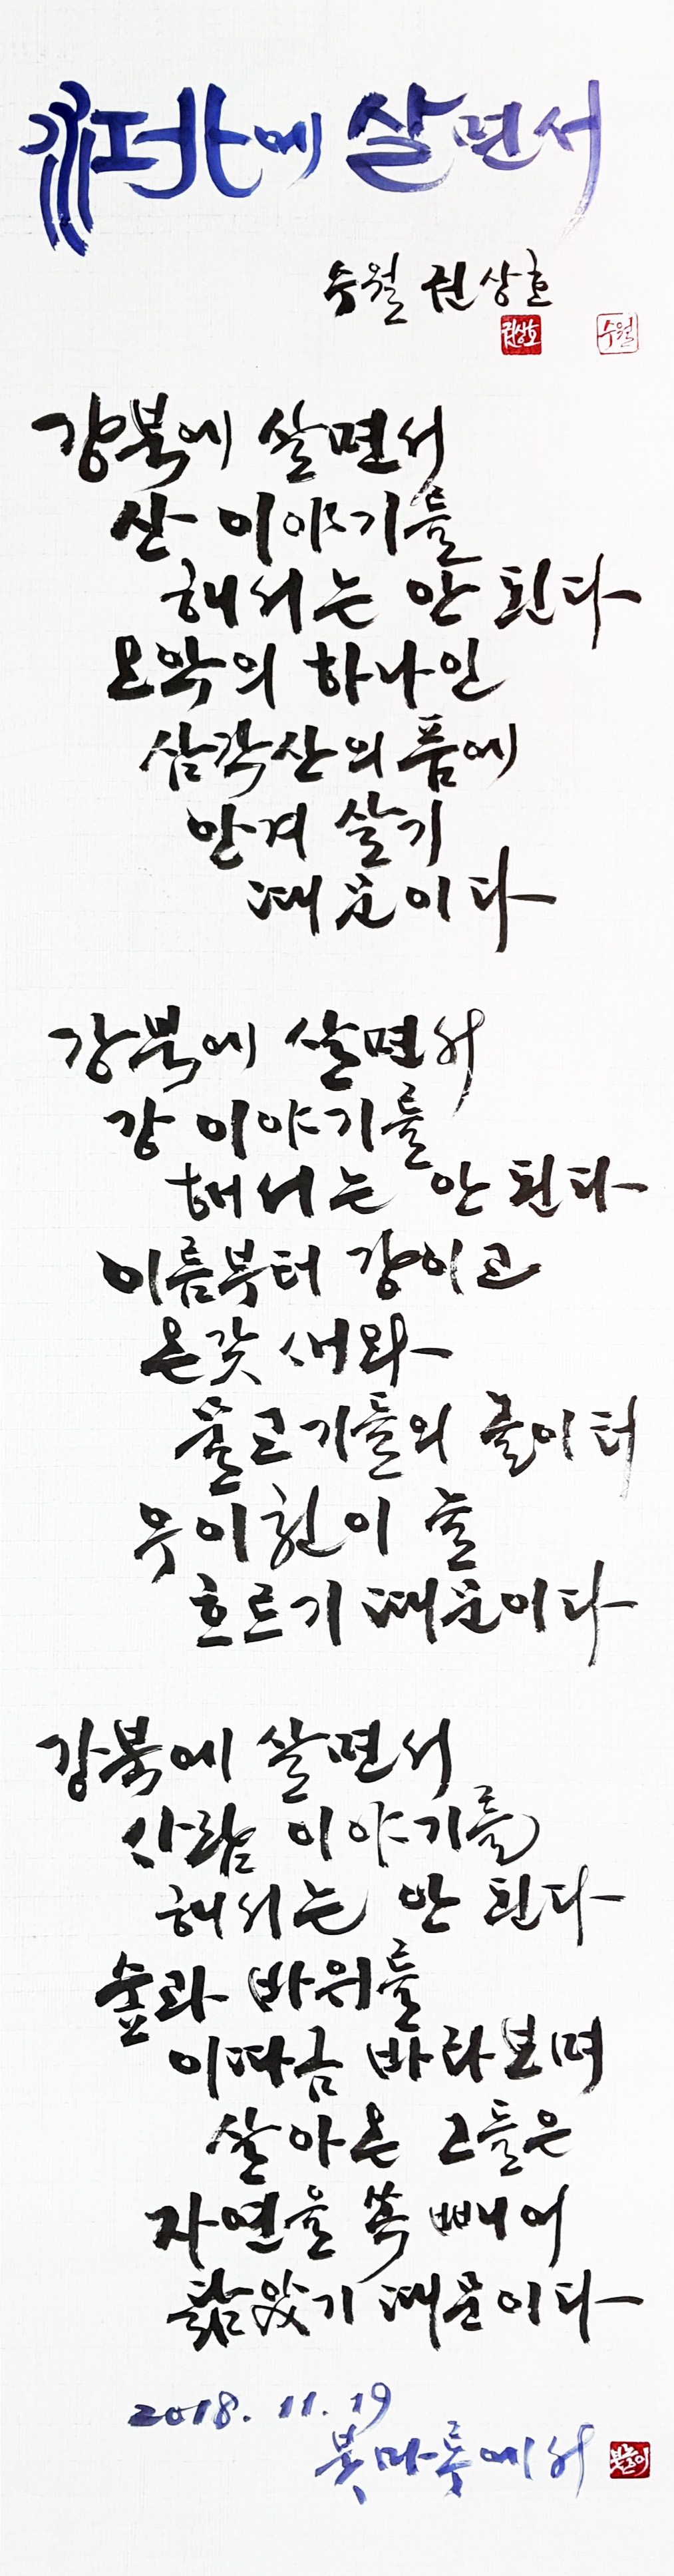 江北에 살면서
수월 권상호
권상호 수월
강북에 살면서
산 이야기를
해서는 안 된다
오악의 하나인
삼각산의 품에
안겨 살기
때문이다
강북에 살면서
강 이야기를
해서는 안 된다
이름부터 강이고
온갖 새와
물고기들의 놀이터
우이천이 늘
흐르기 때문이다
강북에 살면서
사람 이야기를
해서는 안 된다
숲과 바위를
이따금 바라보며
살아온 그들은
자연을 쏙 빼어
닮았기 때문이다
2018. 11. 19
붓마루에서